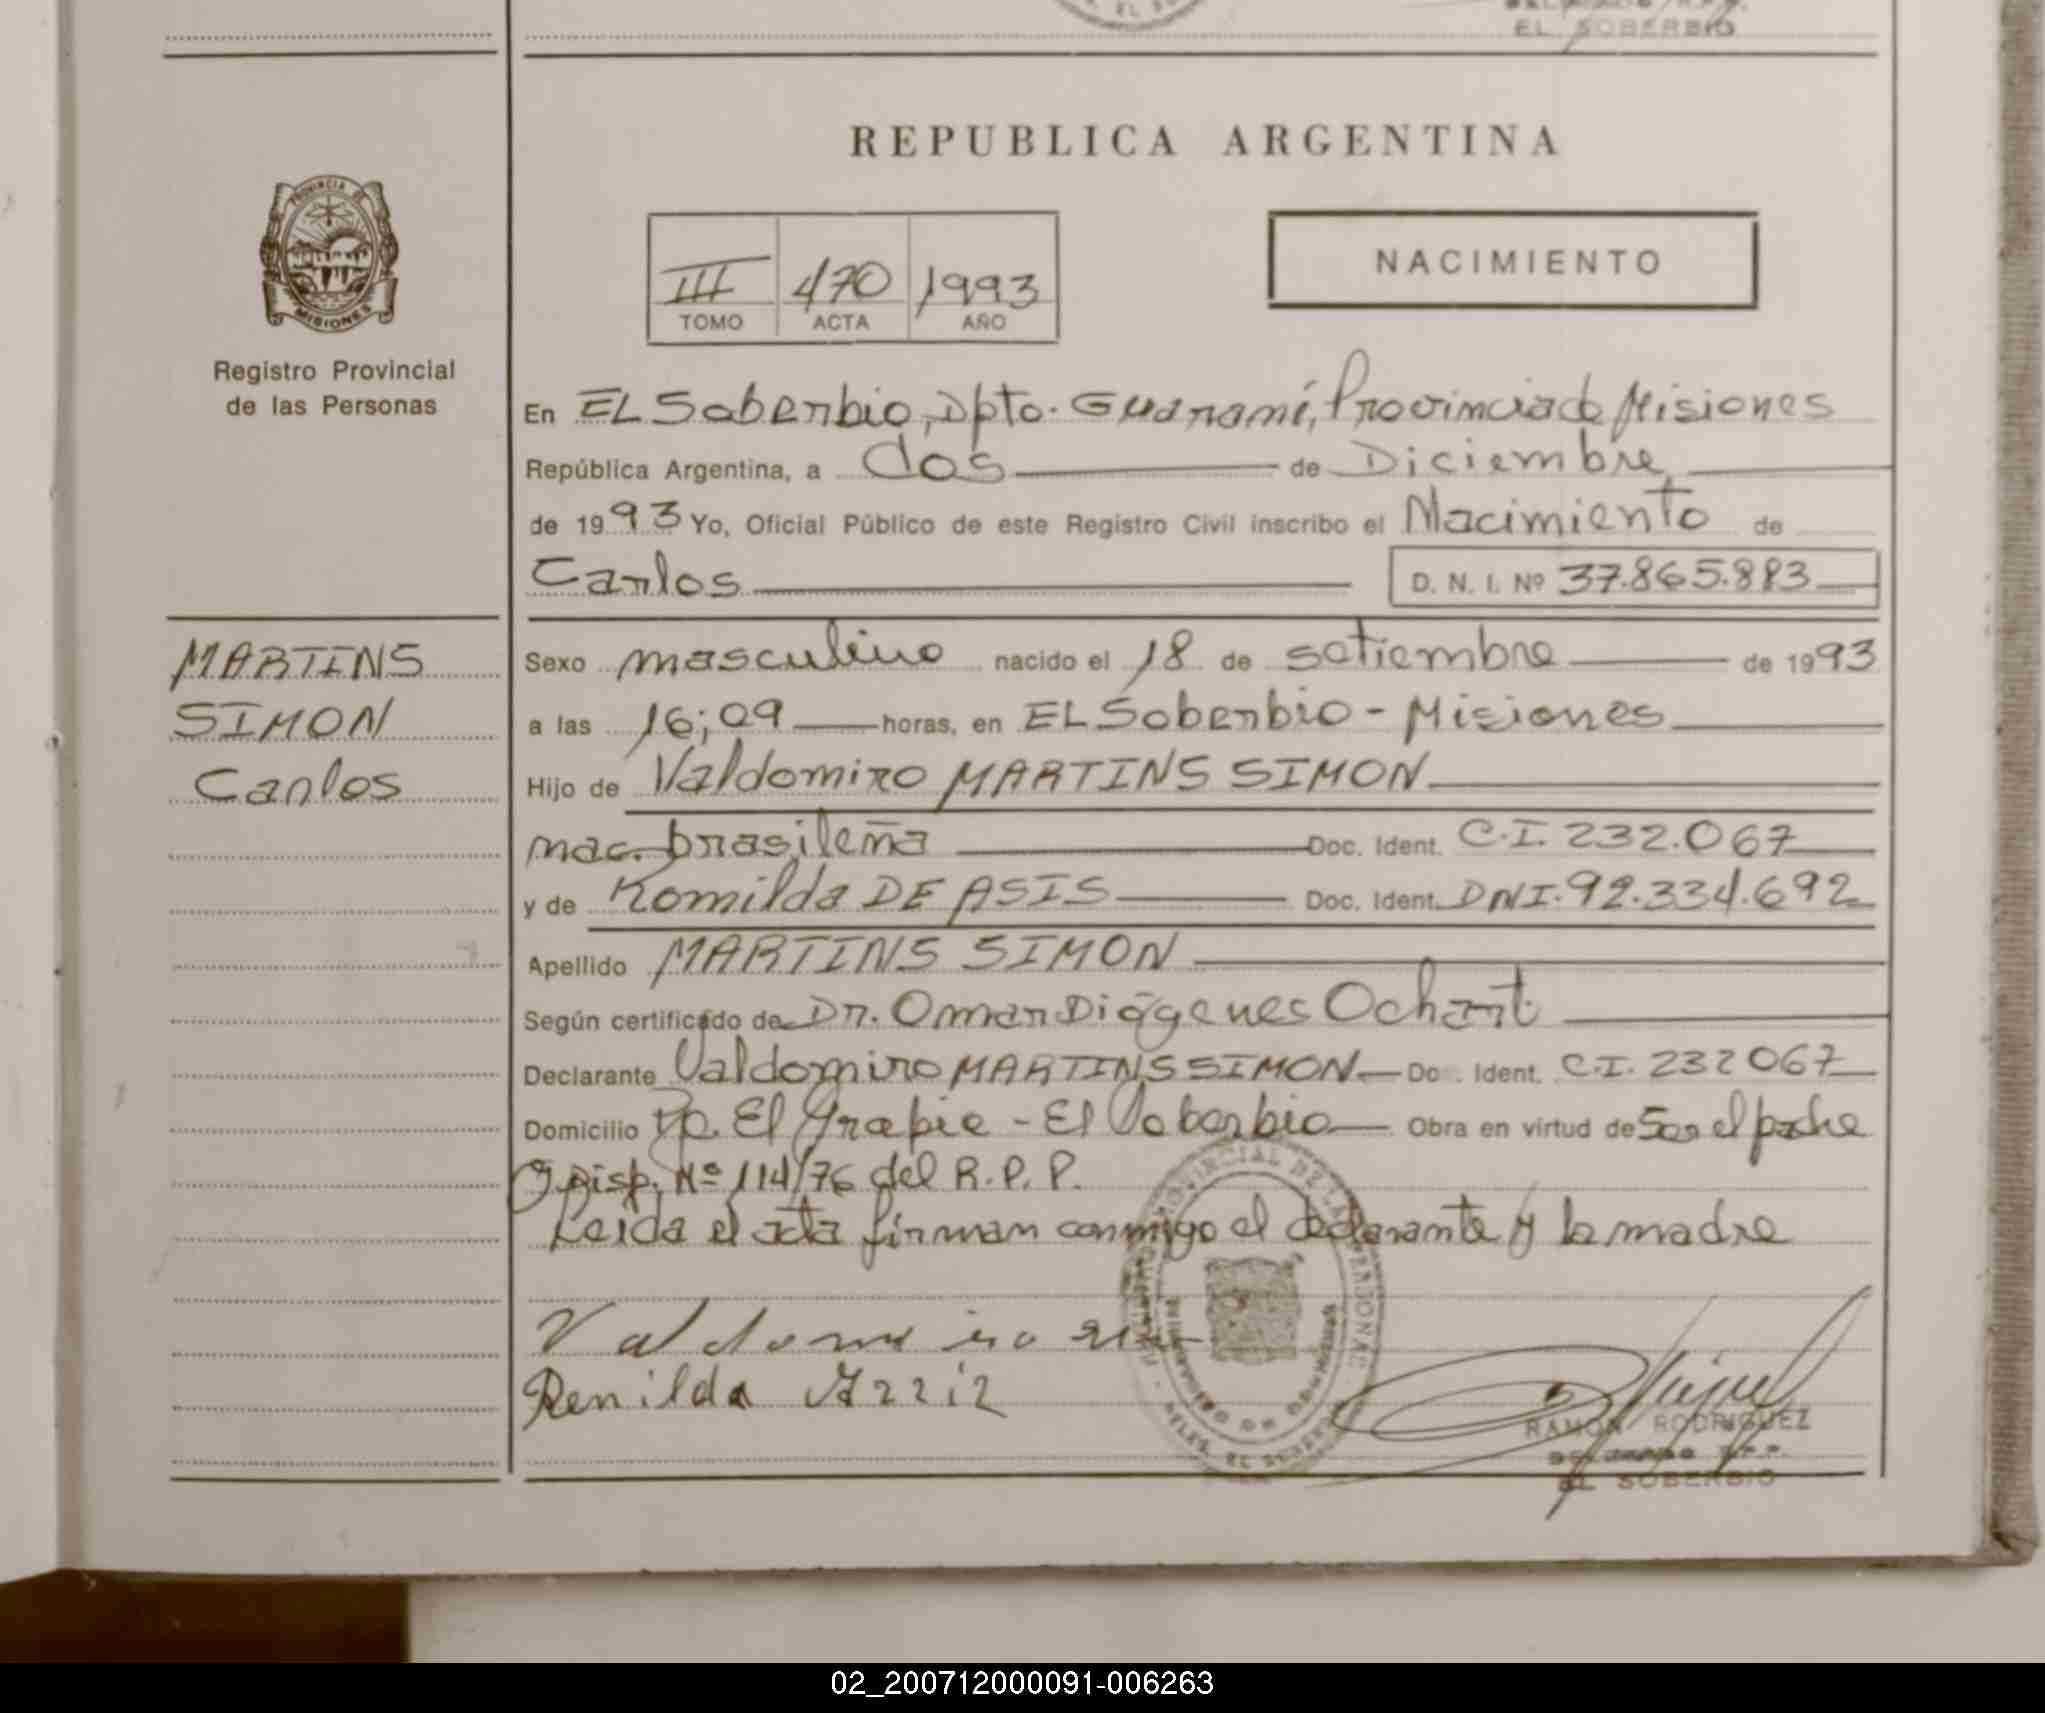 EL SOBERBIO
REPUBLICA ARGENTINA
PROVINCIA DE
MISIONES
Registro Provincial
de las Personas
III 470 1993
TOMO ACTA AÑO
NACIMIENTO
En EL Soberbio, Dpto. Guaraní, Provincia de Misiones
República Argentina, a dos de Diciembre
de 1993 Yo, Oficial Público de este Registro Civil inscribo el Nacimiento de
Carlos D. N. I. Nº 37.865.883
MARTINS
SIMON
Carlos
Sexo masculino nacido el 18 de setiembre de 1993
a las 16;09 horas, en EL Soberbio - Misiones
Hijo de Valdomiro MARTINS SIMON
nac. brasileña Doc. Ident. C.I. 232.067
y de Romilda DE ASIS Doc. Ident. DNI. 92.334.692
Apellido MARTINS SIMON
Según certificado de Dr. Omar Diógenes Ochart
Declarante Valdomiro MARTINS SIMON Doc. Ident. C.I. 232067
Domicilio El - El Soberbio Obra en virtud de Ser el padre
y Disp. Nº 114/76 del R.P.P.
Leida el acta firman conmigo el declarante y la madre
Valdomiro
Renilda
RAMON RODRIGUEZ
EL SOBERBIO
02_200712000091-006263